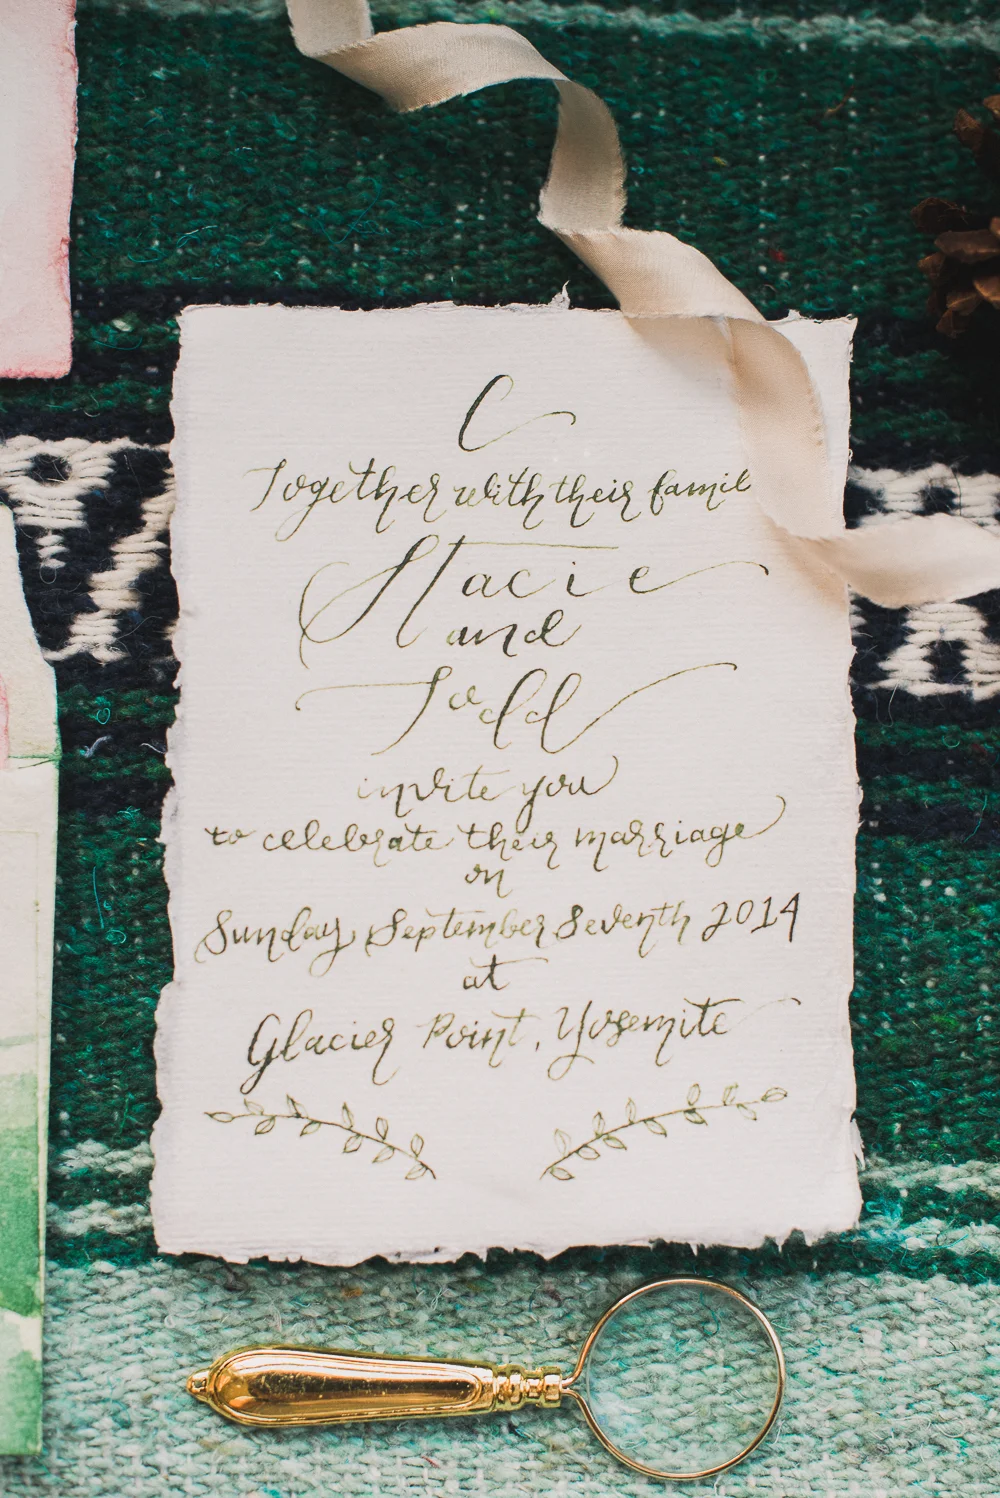 C
Together with their famil
Stacie
and
Todd
invite you
to celebrate their marriage
on
Sunday, September Seventh 2014
at
Glacier Point, Yosemite